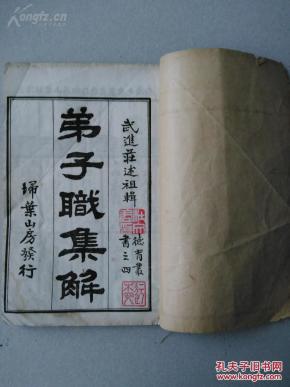 武進莊述祖輯
德育叢書之四
弟子職集解
掃葉山房發行
Kongfz.com
孔夫子旧书网